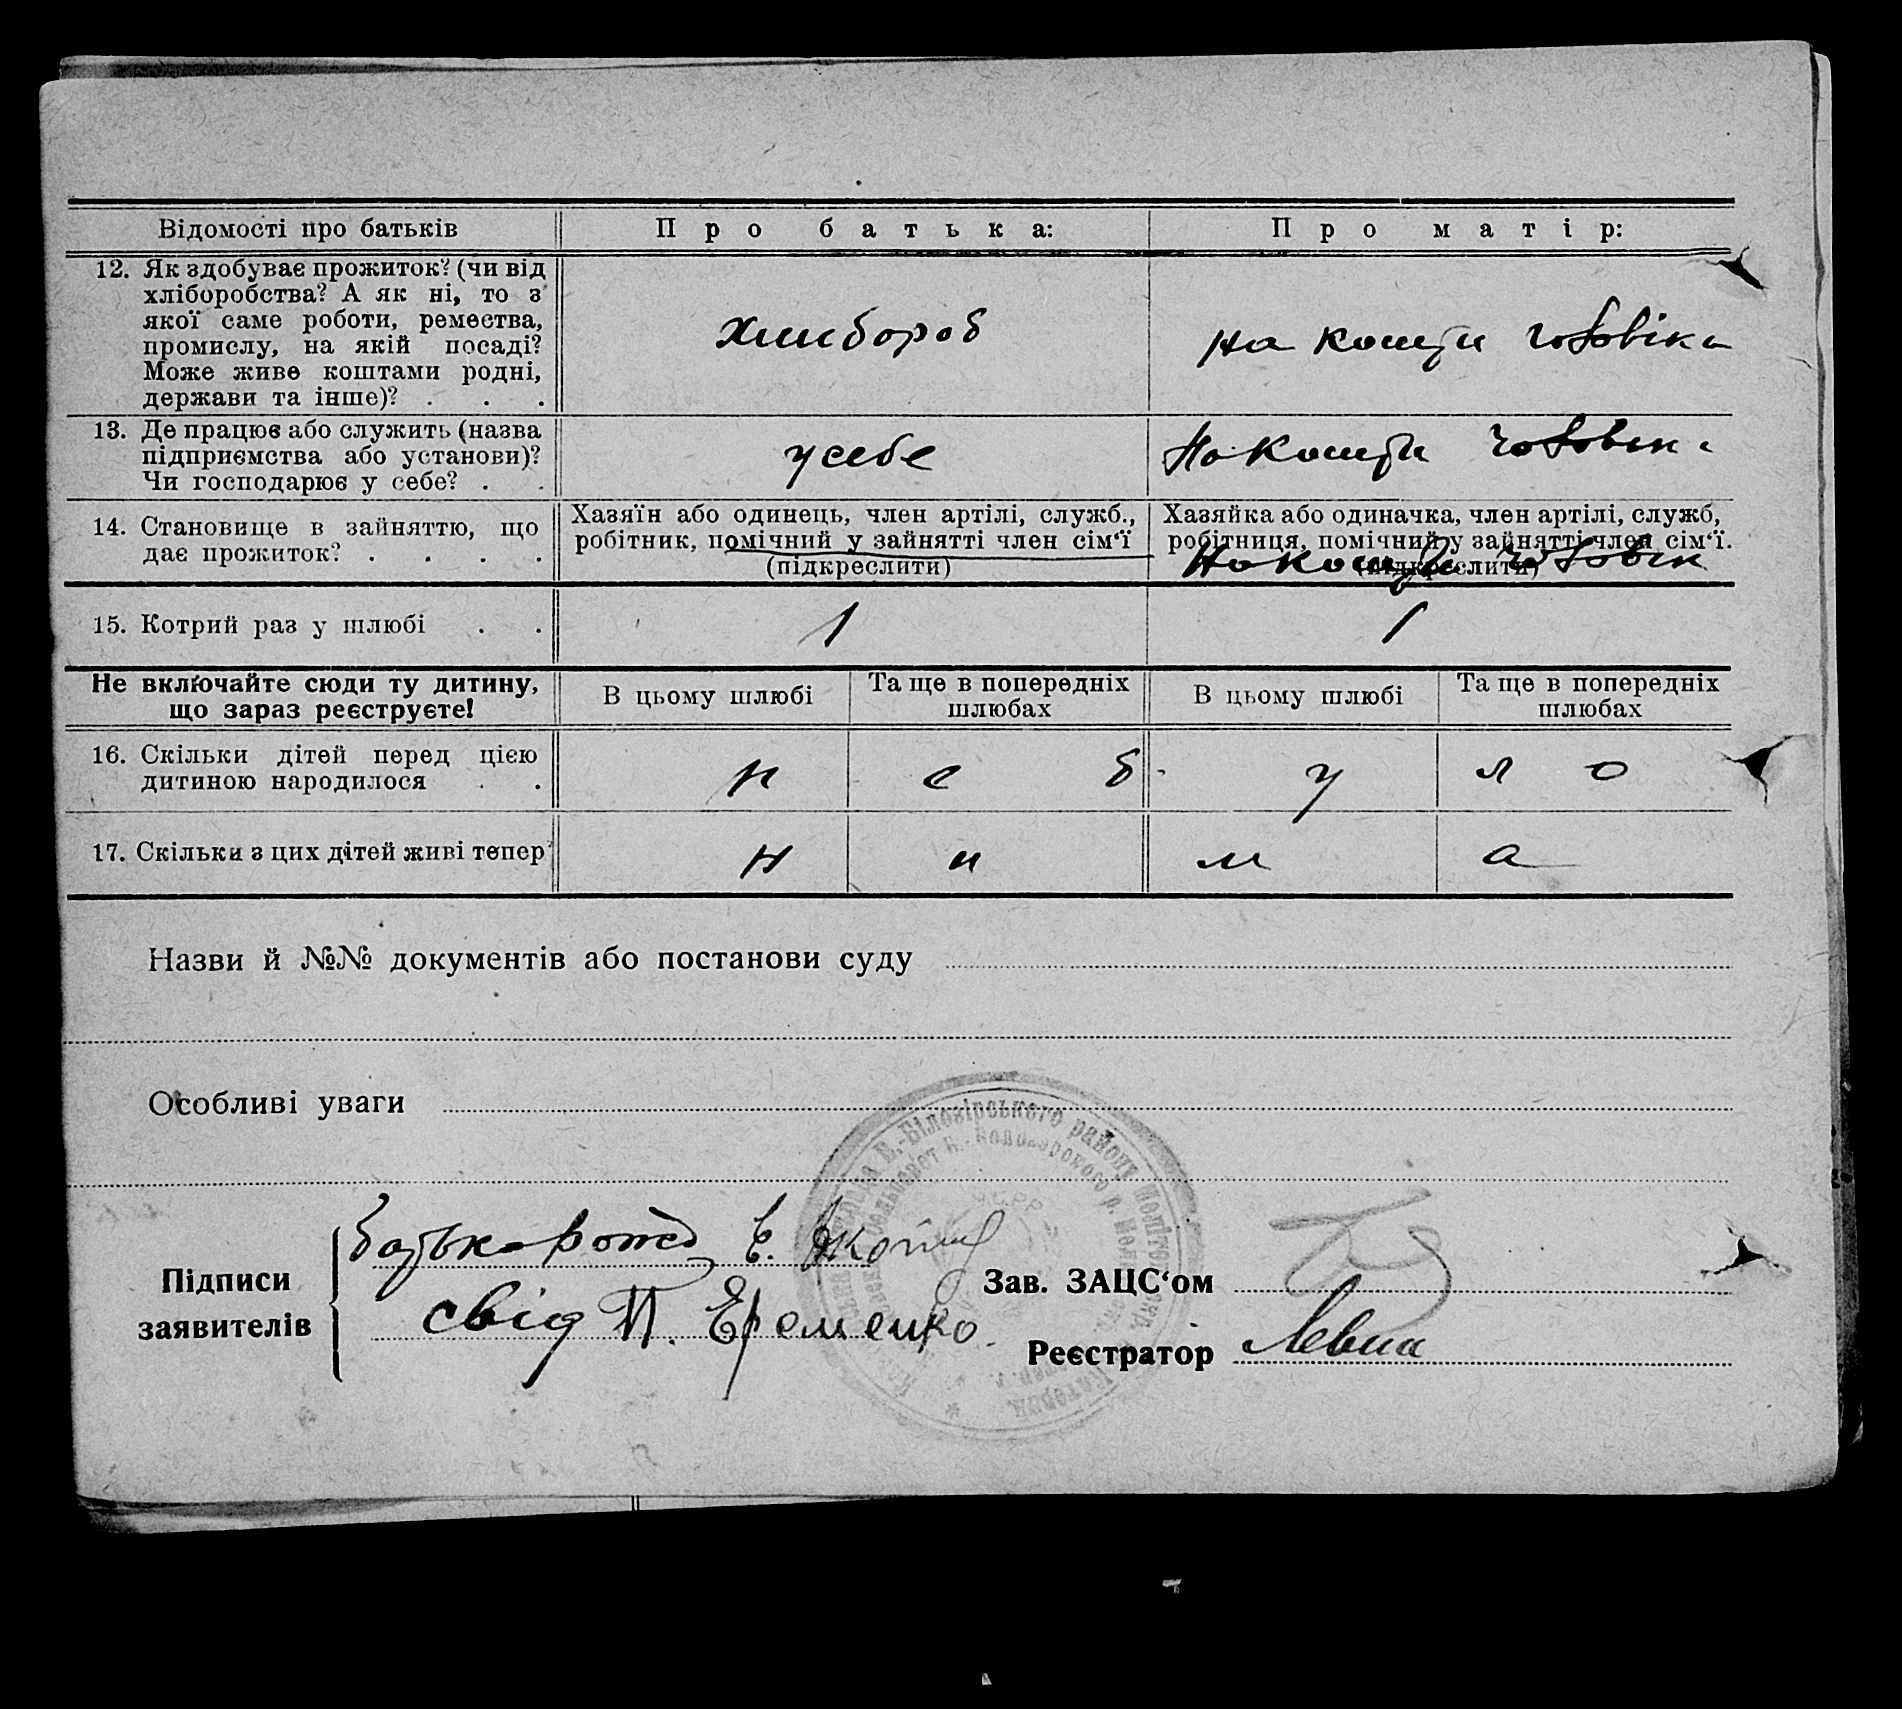 Відомості про батьків Про батька: Про матір:
12. Як здобуває прожиток? (чи від
хліборобства? А як ні, то з
якої саме роботи, ремества,
промислу, на якій посаді?
Може живе коштами родні,
держави та інше)? . . .
хлибороб
на кошти чоловіка
13. Де працює або служить (назва
підприємства або установи)?
Чи господарює у себе? . .
у себе
На кошти чоловіка
14. Становище в зайняттю, що
дає прожиток? . . . .
Хазяїн або одинець, член артілі, служб.,
робітник, помічний у зайнятті член сім‘ї
(підкреслити)
Хазяйка або одиначка, член артілі, служб,
робітниця, помічний у зайнятті член сім‘ї.
(підкреслити)
На кошти чоловік
15. Котрий раз у шлюбі . . 1 1
Не включайте сюди ту дитину,
що зараз реєструєте!
В цьому шлюбі
Та ще в попередніх
шлюбах
В цьому шлюбі
Та ще в попередніх
шлюбах
16. Скільки дітей перед цією
дитиною народилося . .
н е б у л о
17. Скільки з цих дітей живі тепер?
н и м а
Назви й №№ документів або постанови суду
Особливі уваги
В.-Білозірського району
Підписи
заявителів
батько
свід П. Еременко
Зав. ЗАЦС‘ом
Реєстратор